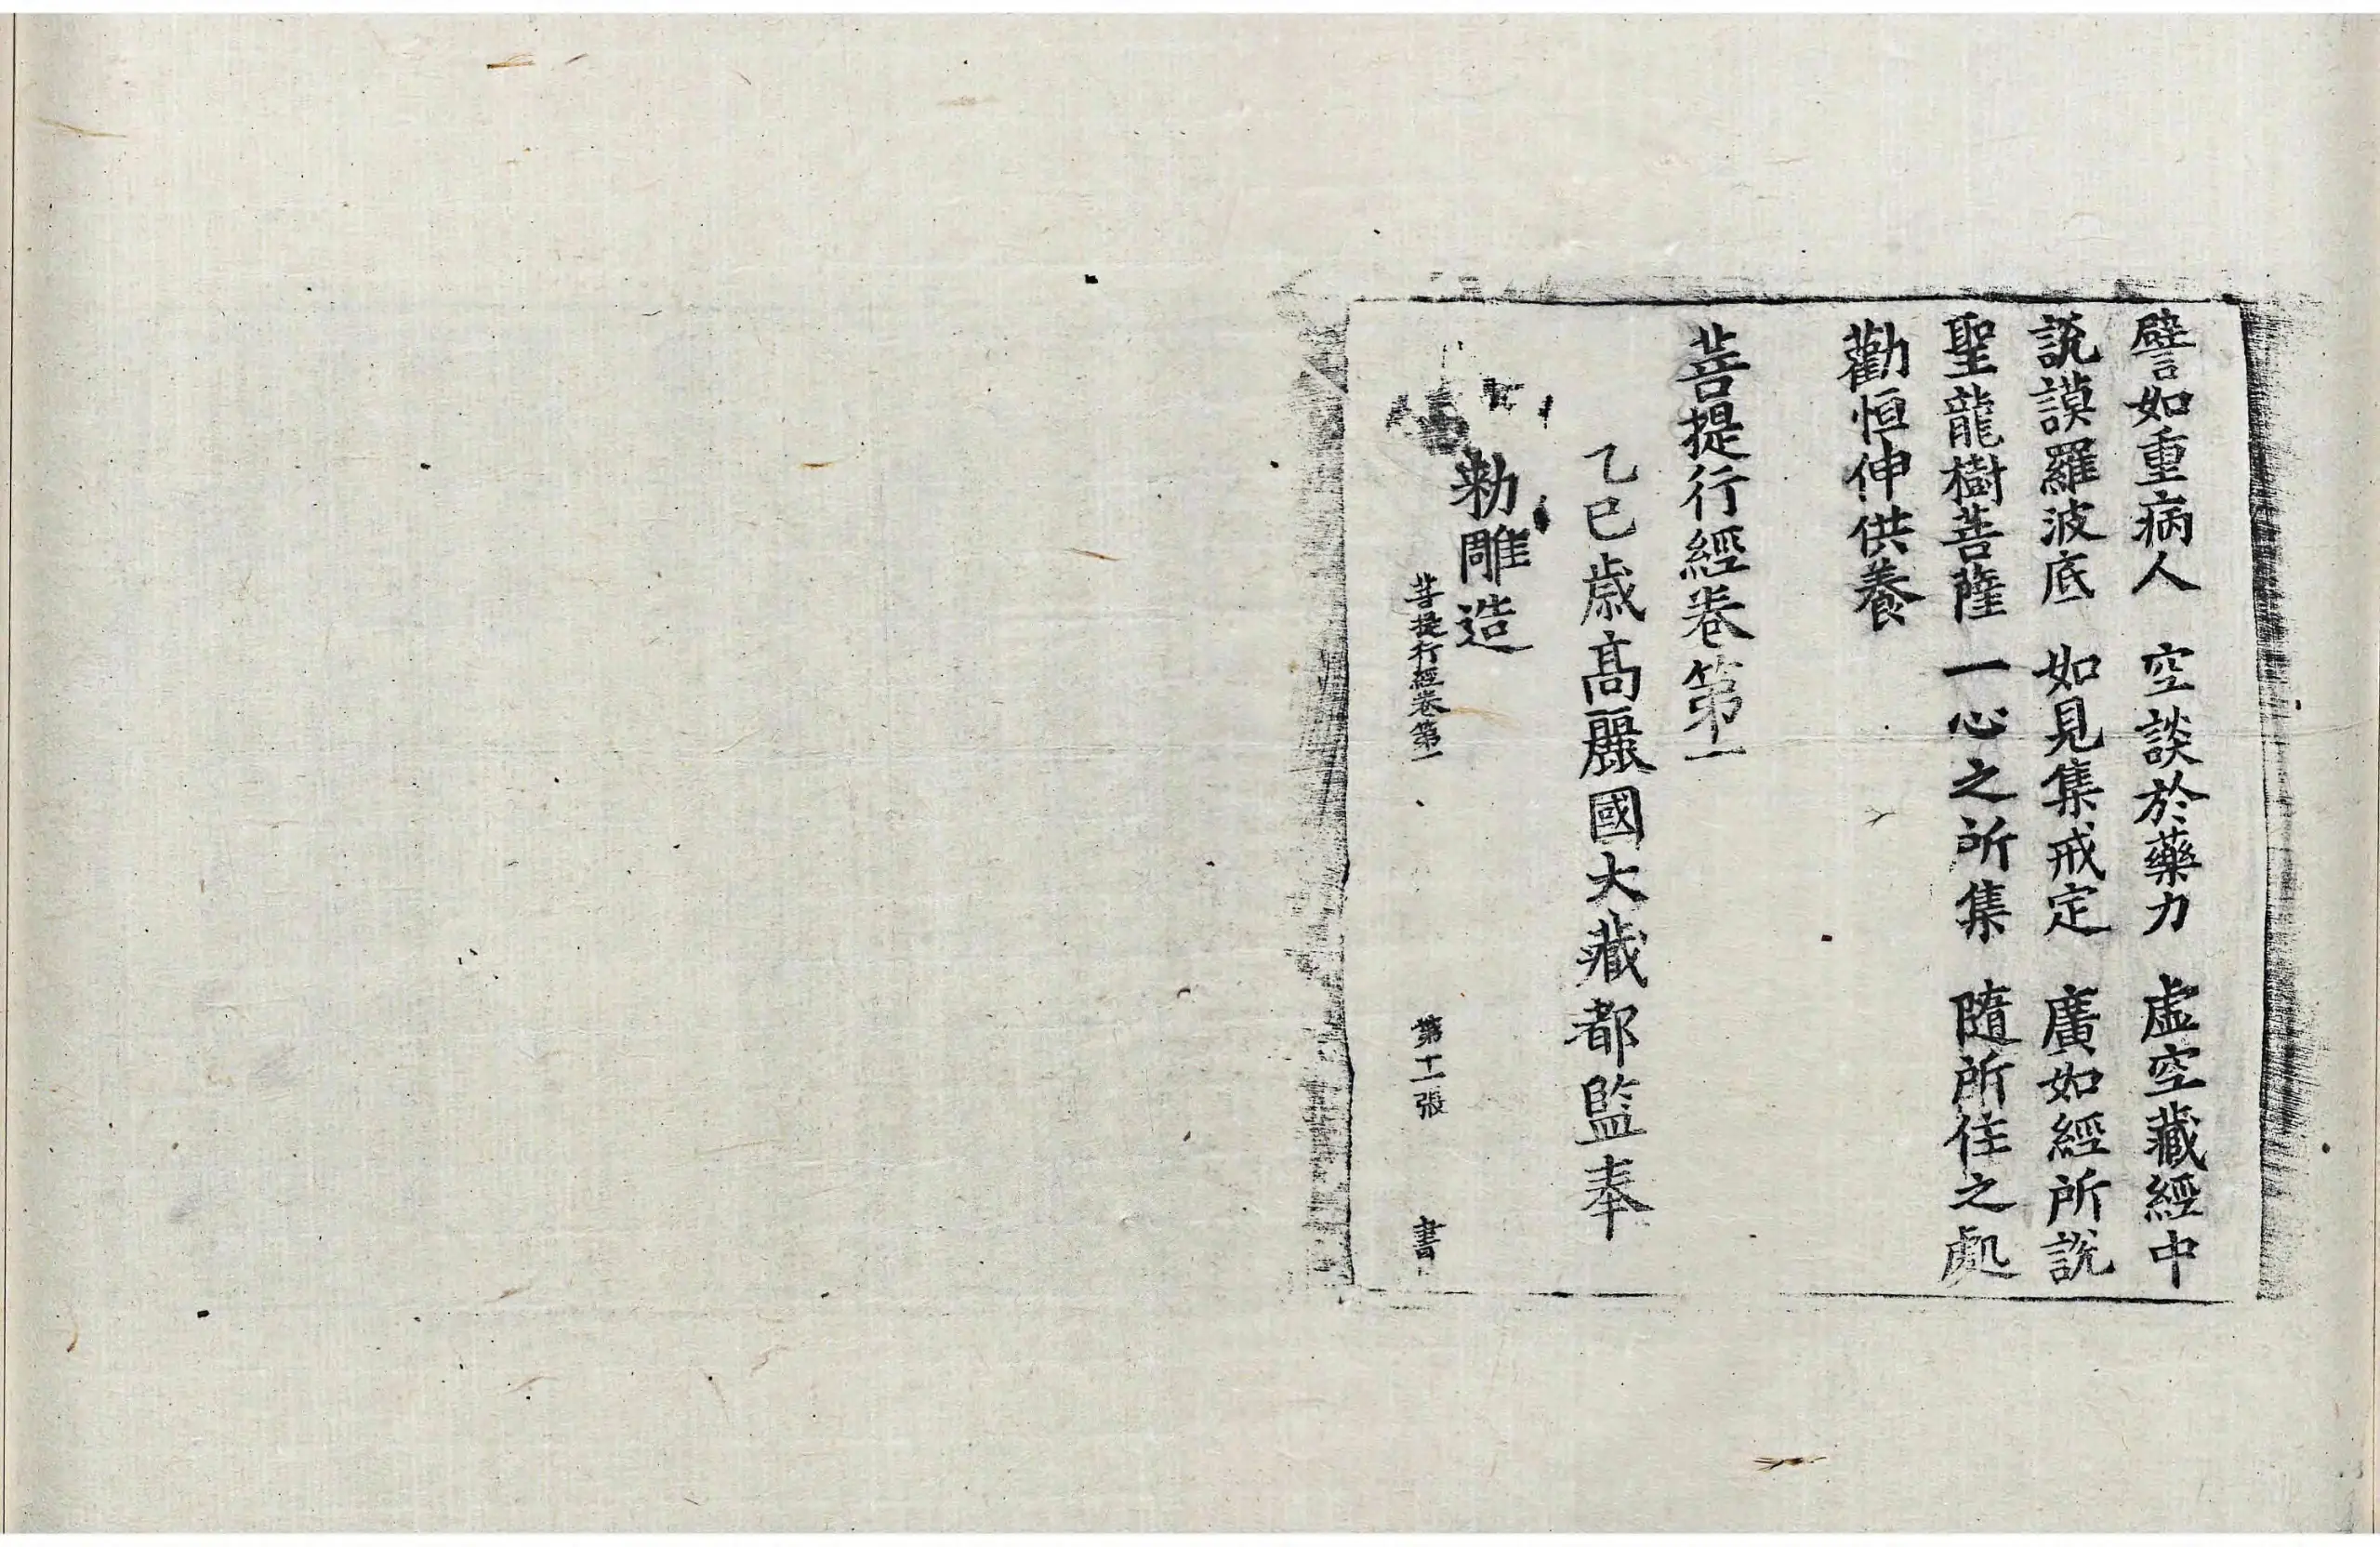 譬如重病人 空談於藥力 虛空藏經中
說謨羅波底 如見集戒定 廣如經所說
聖龍樹菩薩 一心之所集 隨所住之處
勸恒伸供養
菩提行經卷第一
乙巳歲高麗國大藏都監奉
勅雕造
菩提行經卷第一 第十一張 書